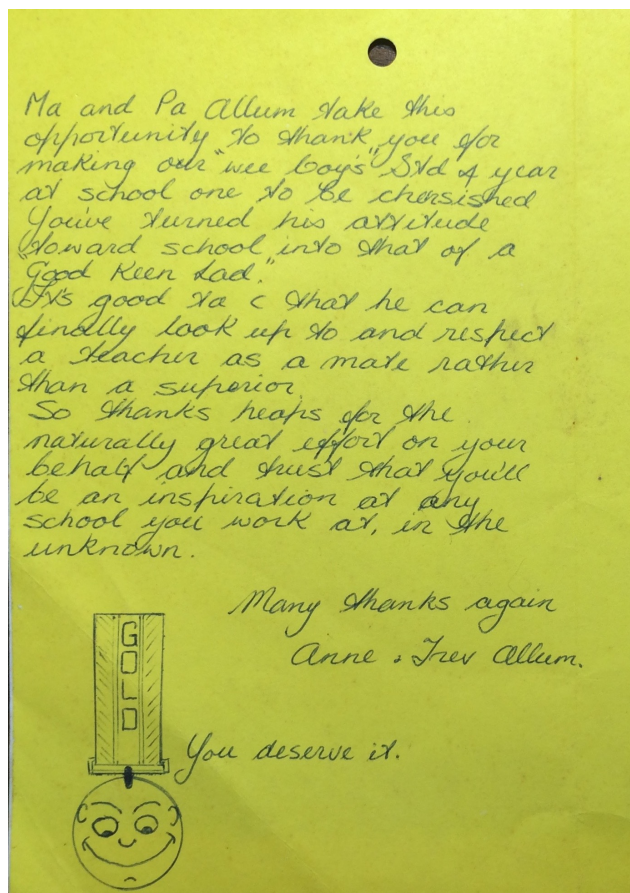 Ma and Pa Allum take this
opportunity to thank you for
making our "wee boy's" Std 4 year
at school one to be chersished
You've turned his attitude
toward school into that of a
"Good Keen Lad."
It's good ta c that he can
finally look up to and respect
a teacher as a mate rather
than a superior
So thanks heaps for the
naturally great effort on your
behalf and trust that you'll
be an inspiration at any
school you work at, in the
unknown.
Many thanks again
Anne & Trev Allum.
GOLD
You deserve it.